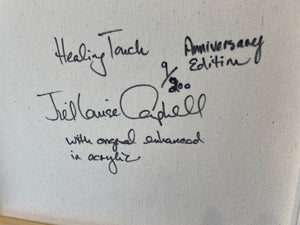 Healing Touch
Anniversary
Edition
9/200
Louise Campbell
with original enhanced
in acrylic